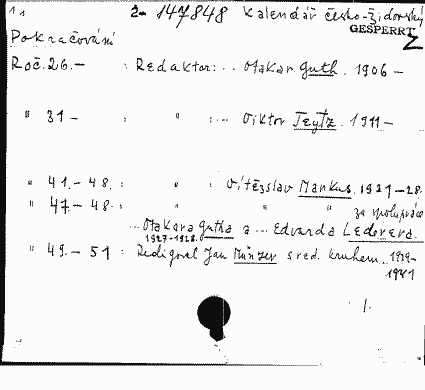 1. 2- 147848 Kalendář česko-židovský
GESPERRT Z
Pokračování
Roč. 26.- : Redaktor: .. Otakar Guth. 1906-
" 31- : " : .. Viktor Teytz. 1911-
" 41.-48. : " Vítězslav Markus. 1921-28.
" 47.-48. : " " " za spolupráce
... Otakara Gutha a ... Edvarda Lederera.
1927-1928.
" 49.-51 : Redigoval Jan Münzer s red. kruhem. 1929-
1931
1.